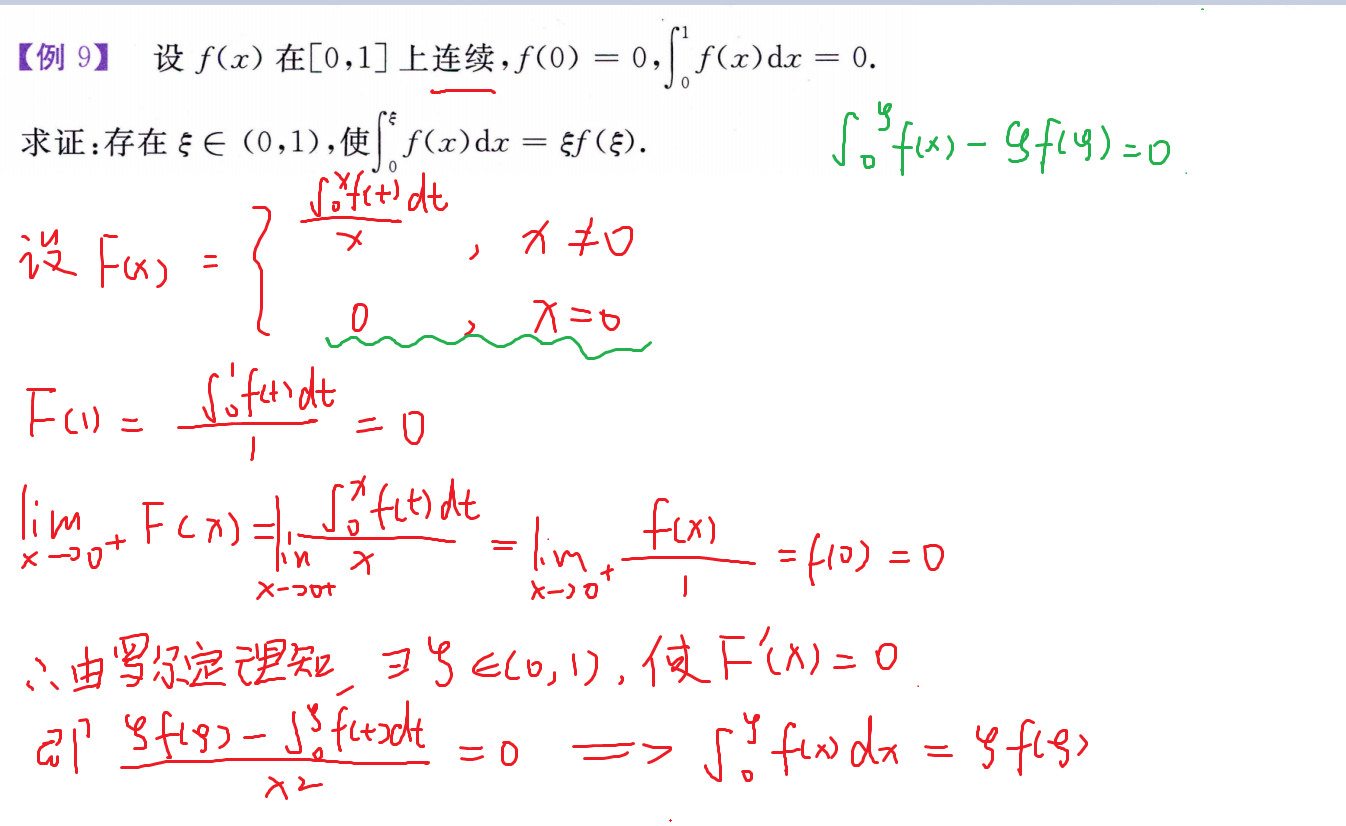 【例 9】 设 f(x) 在[0,1] 上连续,f(0) = 0,∫₀¹ f(x)dx = 0.
求证:存在 ξ ∈ (0,1),使∫₀^ξ f(x)dx = ξf(ξ).
∫₀^ξ f(x) - ξf(ξ) = 0
设 F(x) = { ∫₀^x f(t)dt / x , x ≠ 0
0 , x = 0
F(1) = ∫₀¹ f(t)dt / 1 = 0
lim x→0⁺ F(x) = lim x→0+ ∫₀^x f(t)dt / x = lim x→0⁺ f(x) / 1 = f(0) = 0
∴由罗尔定理知, ∃ ξ ∈(0,1), 使 F′(x) = 0
即 ξf(ξ) - ∫₀^ξ f(t)dt / x2 = 0 => ∫₀^ξ f(x)dx = ξf(ξ)